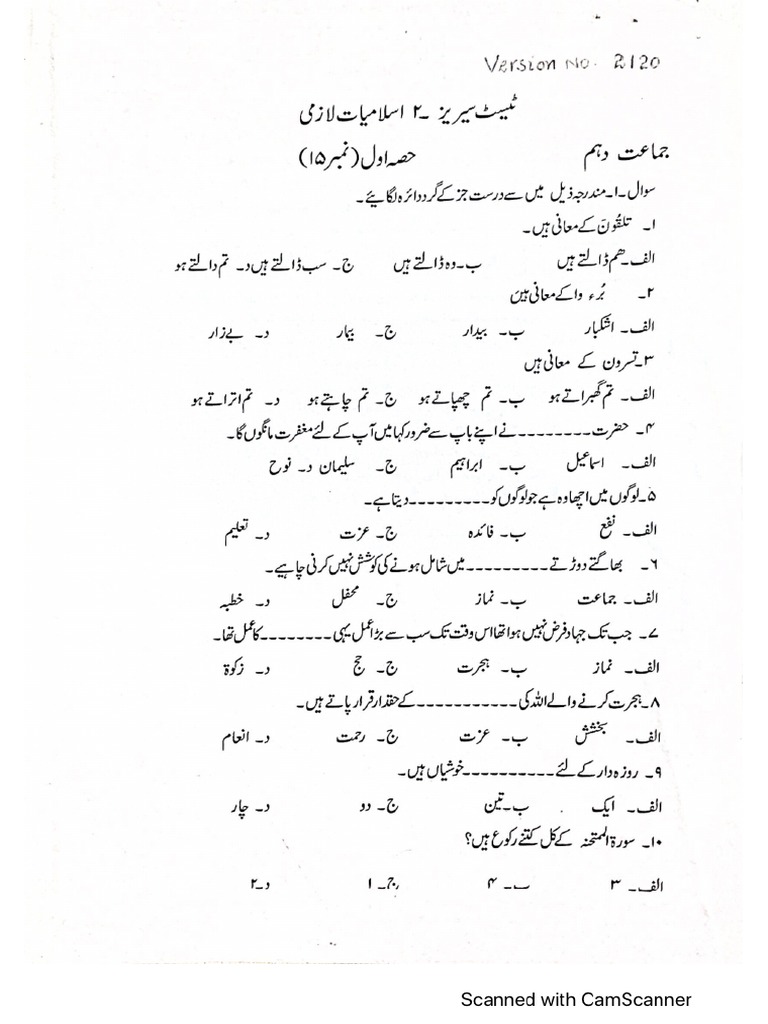 Version No. 2120
ٹیسٹ سیریز ۔۲ اسلامیات لازمی
جماعت دہم حصہ اول (نمبر ۱۵)
سوال۔۱۔مندرجہ ذیل میں سے درست جز کے گرد دائرہ لگائیے۔
۱۔ تلقُونَ کے معانی ہیں۔
الف۔ ھم ڈالتے ہیں ب۔ وہ ڈالتے ہیں ج۔ سب ڈالتے ہیں د۔ تم دالتے ہو
۲۔ بُرء وا کے معانی ہیں
الف۔ اشکبار ب۔ بیدار ج۔ بیمار د۔ بے زار
۳۔تسرون کے معانی ہیں
الف۔ تم گھبراتے ہو ب۔ تم چھپاتے ہو ج۔ تم چاہتے ہو د۔ تم اتراتے ہو
۴۔ حضرت۔۔۔۔۔۔۔۔نے اپنے باپ سے ضرور کہا میں آپ کے لئے مغفرت مانگوں گا۔
الف۔ اسماعیل ب۔ ابراہیم ج۔ سلیمان د۔ نوح
۵۔لوگوں میں اچھا وہ ہے جو لوگوں کو۔۔۔۔۔۔۔۔۔دیتا ہے۔
الف۔ نفع ب۔ فائدہ ج۔ عزت د۔ تعلیم
۶۔ بھاگتے دوڑتے۔۔۔۔۔۔۔۔۔میں شامل ہونے کی کوشش نہیں کرنی چاہیے۔
الف۔ جماعت ب۔ نماز ج۔ محفل د۔ خطبہ
۷۔ جب تک جہاد فرض نہیں ہوا تھا اس وقت تک سب سے بڑا عمل یہی۔۔۔۔۔۔۔۔کا عمل تھا۔
الف۔ نماز ب۔ ہجرت ج۔ حج د۔ زکوۃ
۸۔ہجرت کرنے والے اللہ کی۔۔۔۔۔۔۔۔۔۔۔کے حقدار قرار پاتے ہیں۔
الف۔ بخشش ب۔ عزت ج۔ رحمت د۔ انعام
۹۔ روزہ دار کے لئے۔۔۔۔۔۔۔۔۔۔خوشیاں ہیں۔
الف۔ ایک ب۔تین ج۔ دو د۔ چار
۱۰۔ سورۃ الممتحنہ کے کل کتنے رکوع ہیں؟
الف۔ ۳ ب۔ ۴ ج۔ ۱ د۔۲
Scanned with CamScanner